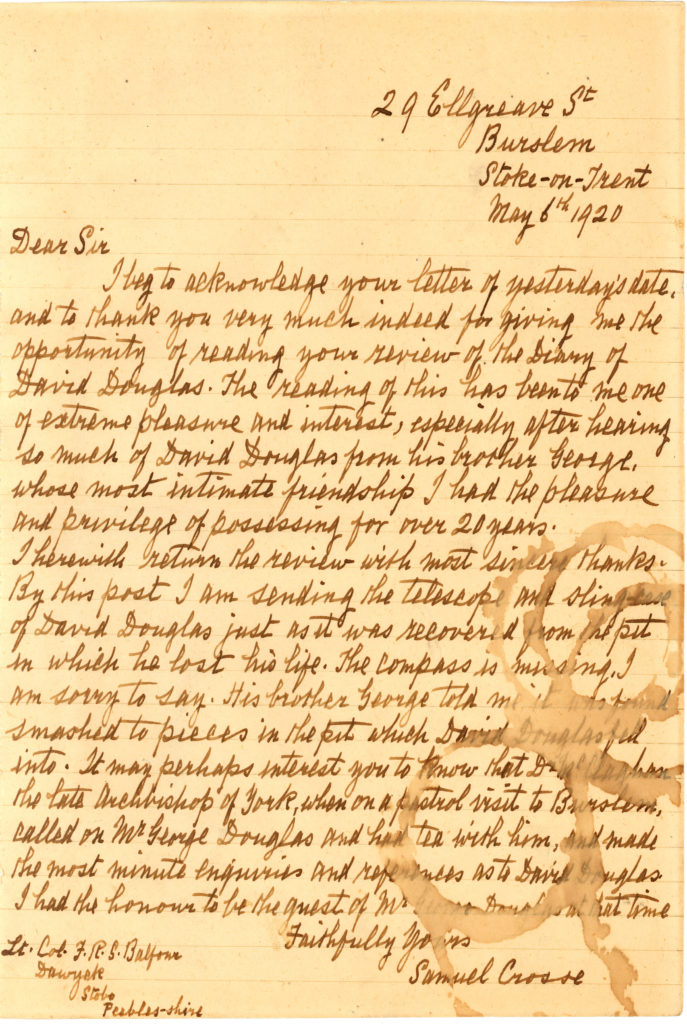 29 Ellgreave St
Burslem
Stoke-on-Trent
May 6th 1920
Dear Sir
I beg to acknowledge your letter of yesterday's date,
and to thank you very much indeed for giving me the
opportunity of reading your review of the Diary of
David Douglas. The reading of this has been to me one
of extreme pleasure and interest, especially after hearing
so much of David Douglas from his brother George,
whose most intimate friendship I had the pleasure
and privilege of possessing for over 20 years.
I herewith return the review with most sincere thanks.
By this post I am sending the telescope and sling-case
of David Douglas just as it was recovered from the pit
in which he lost his life. The compass is missing, I
am sorry to say. His brother George told me it was found
smashed to pieces in the pit which David Douglas fell
into. It may perhaps interest you to know that Dr McClaghan
the late Archbishop of York, when on a pastrol visit to Burslem,
called on Mr George Douglas and had tea with him, and made
the most minute enquiries and references as to David Douglas
I had the honour to be the guest of Mr George Douglas at that time
Faithfully Yours
Samuel Crosse
Lt. Col. F. R. S. Balfour
Dawyck
Stobo
Peebles-shire